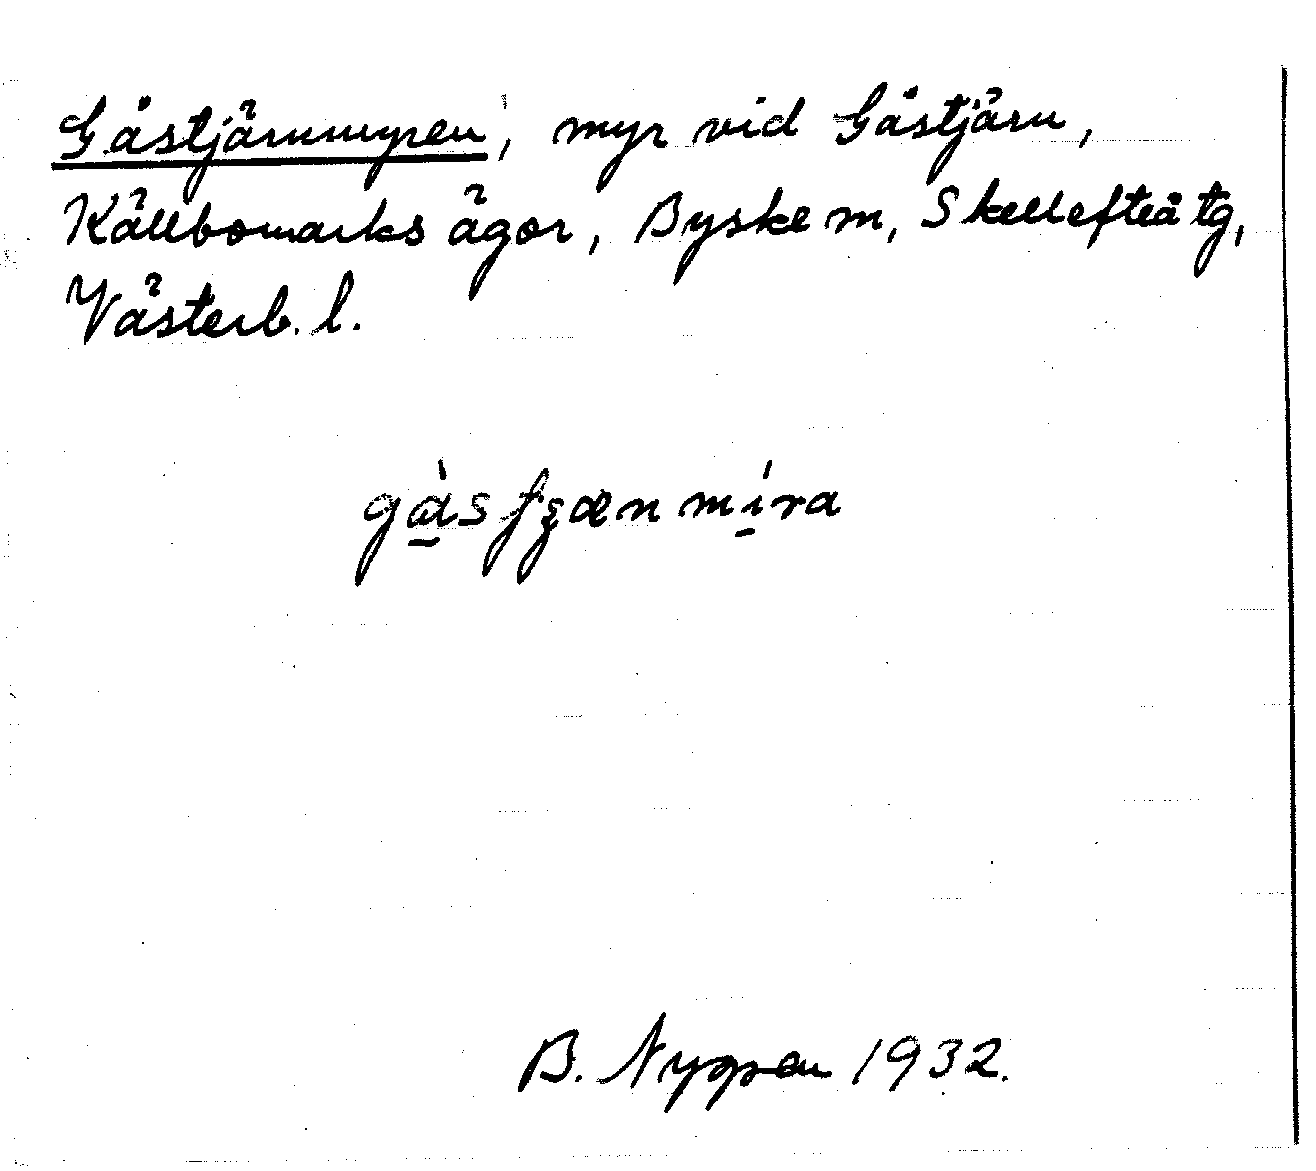 Gåstjärnmyren, myr vid Gåstjärn,
Källbomarks ägor, Byske sn, Skellefteå tg,
Västerb. l.
B. Nygren 1932.